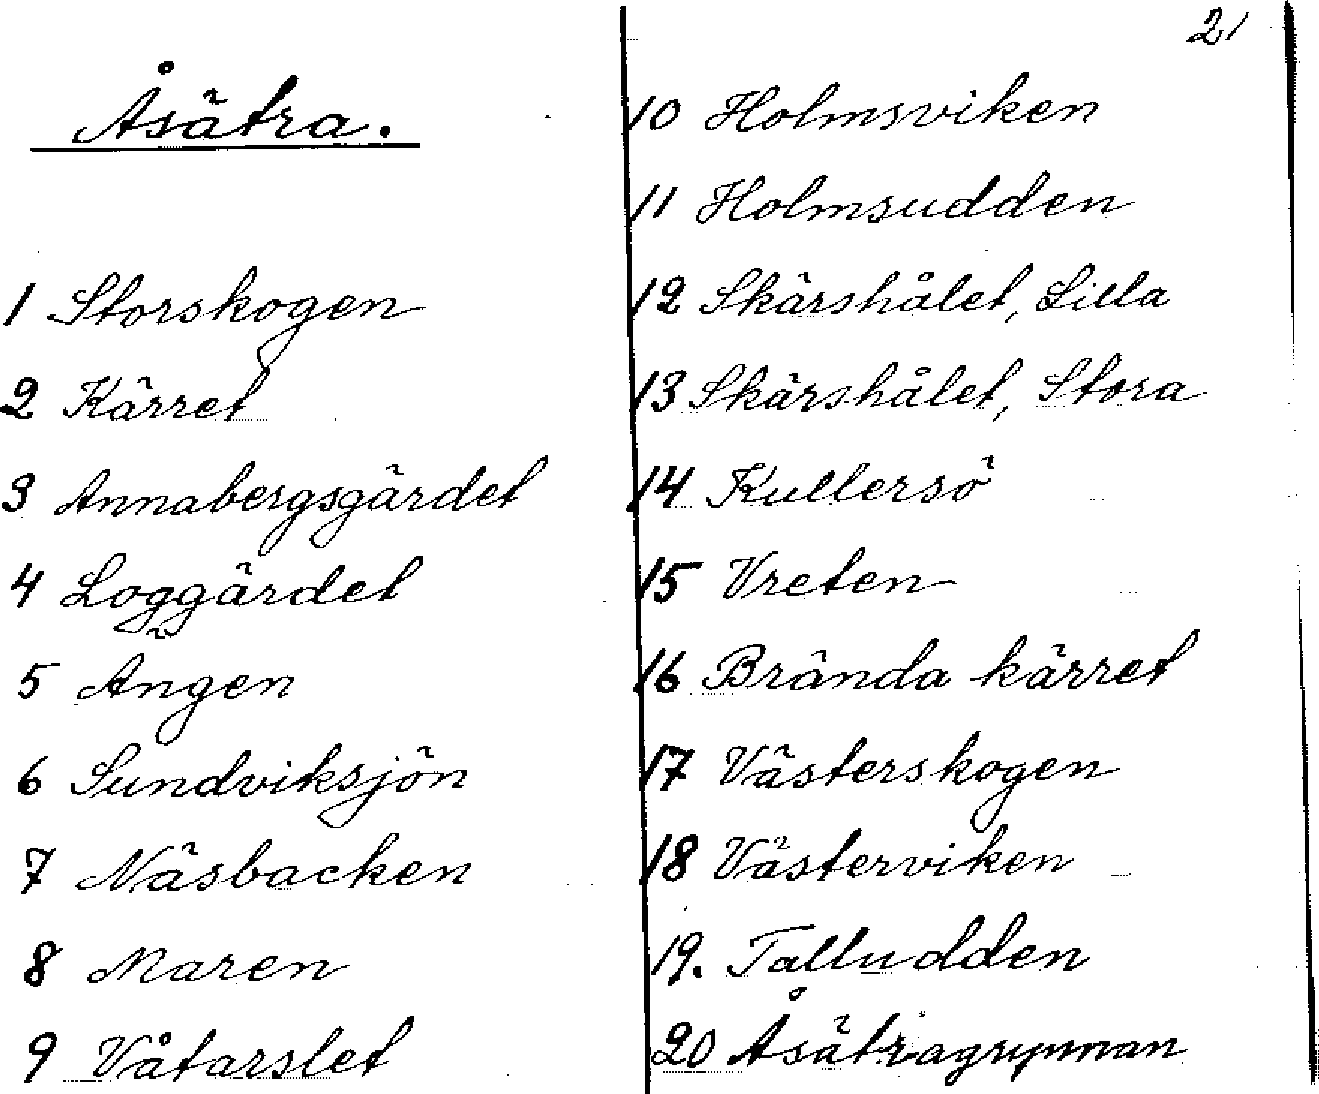 21
Åsätra.
1 Storskogen
2 Kärret
3 Annabergsgärdet
4 Loggärdet
5 Ängen
6 Sundviksjön
7 Näsbacken
8 Maren
9 Våtarslet
10 Holmsviken
11 Holmsudden
12 Skärshålet, Lilla
13 Skärshålet, Stora
14 Kullersö
15 Vreten
16 Brända kärret
17 Västerskogen
18 Västerviken
19. Talludden
20 Åsätragrynnan